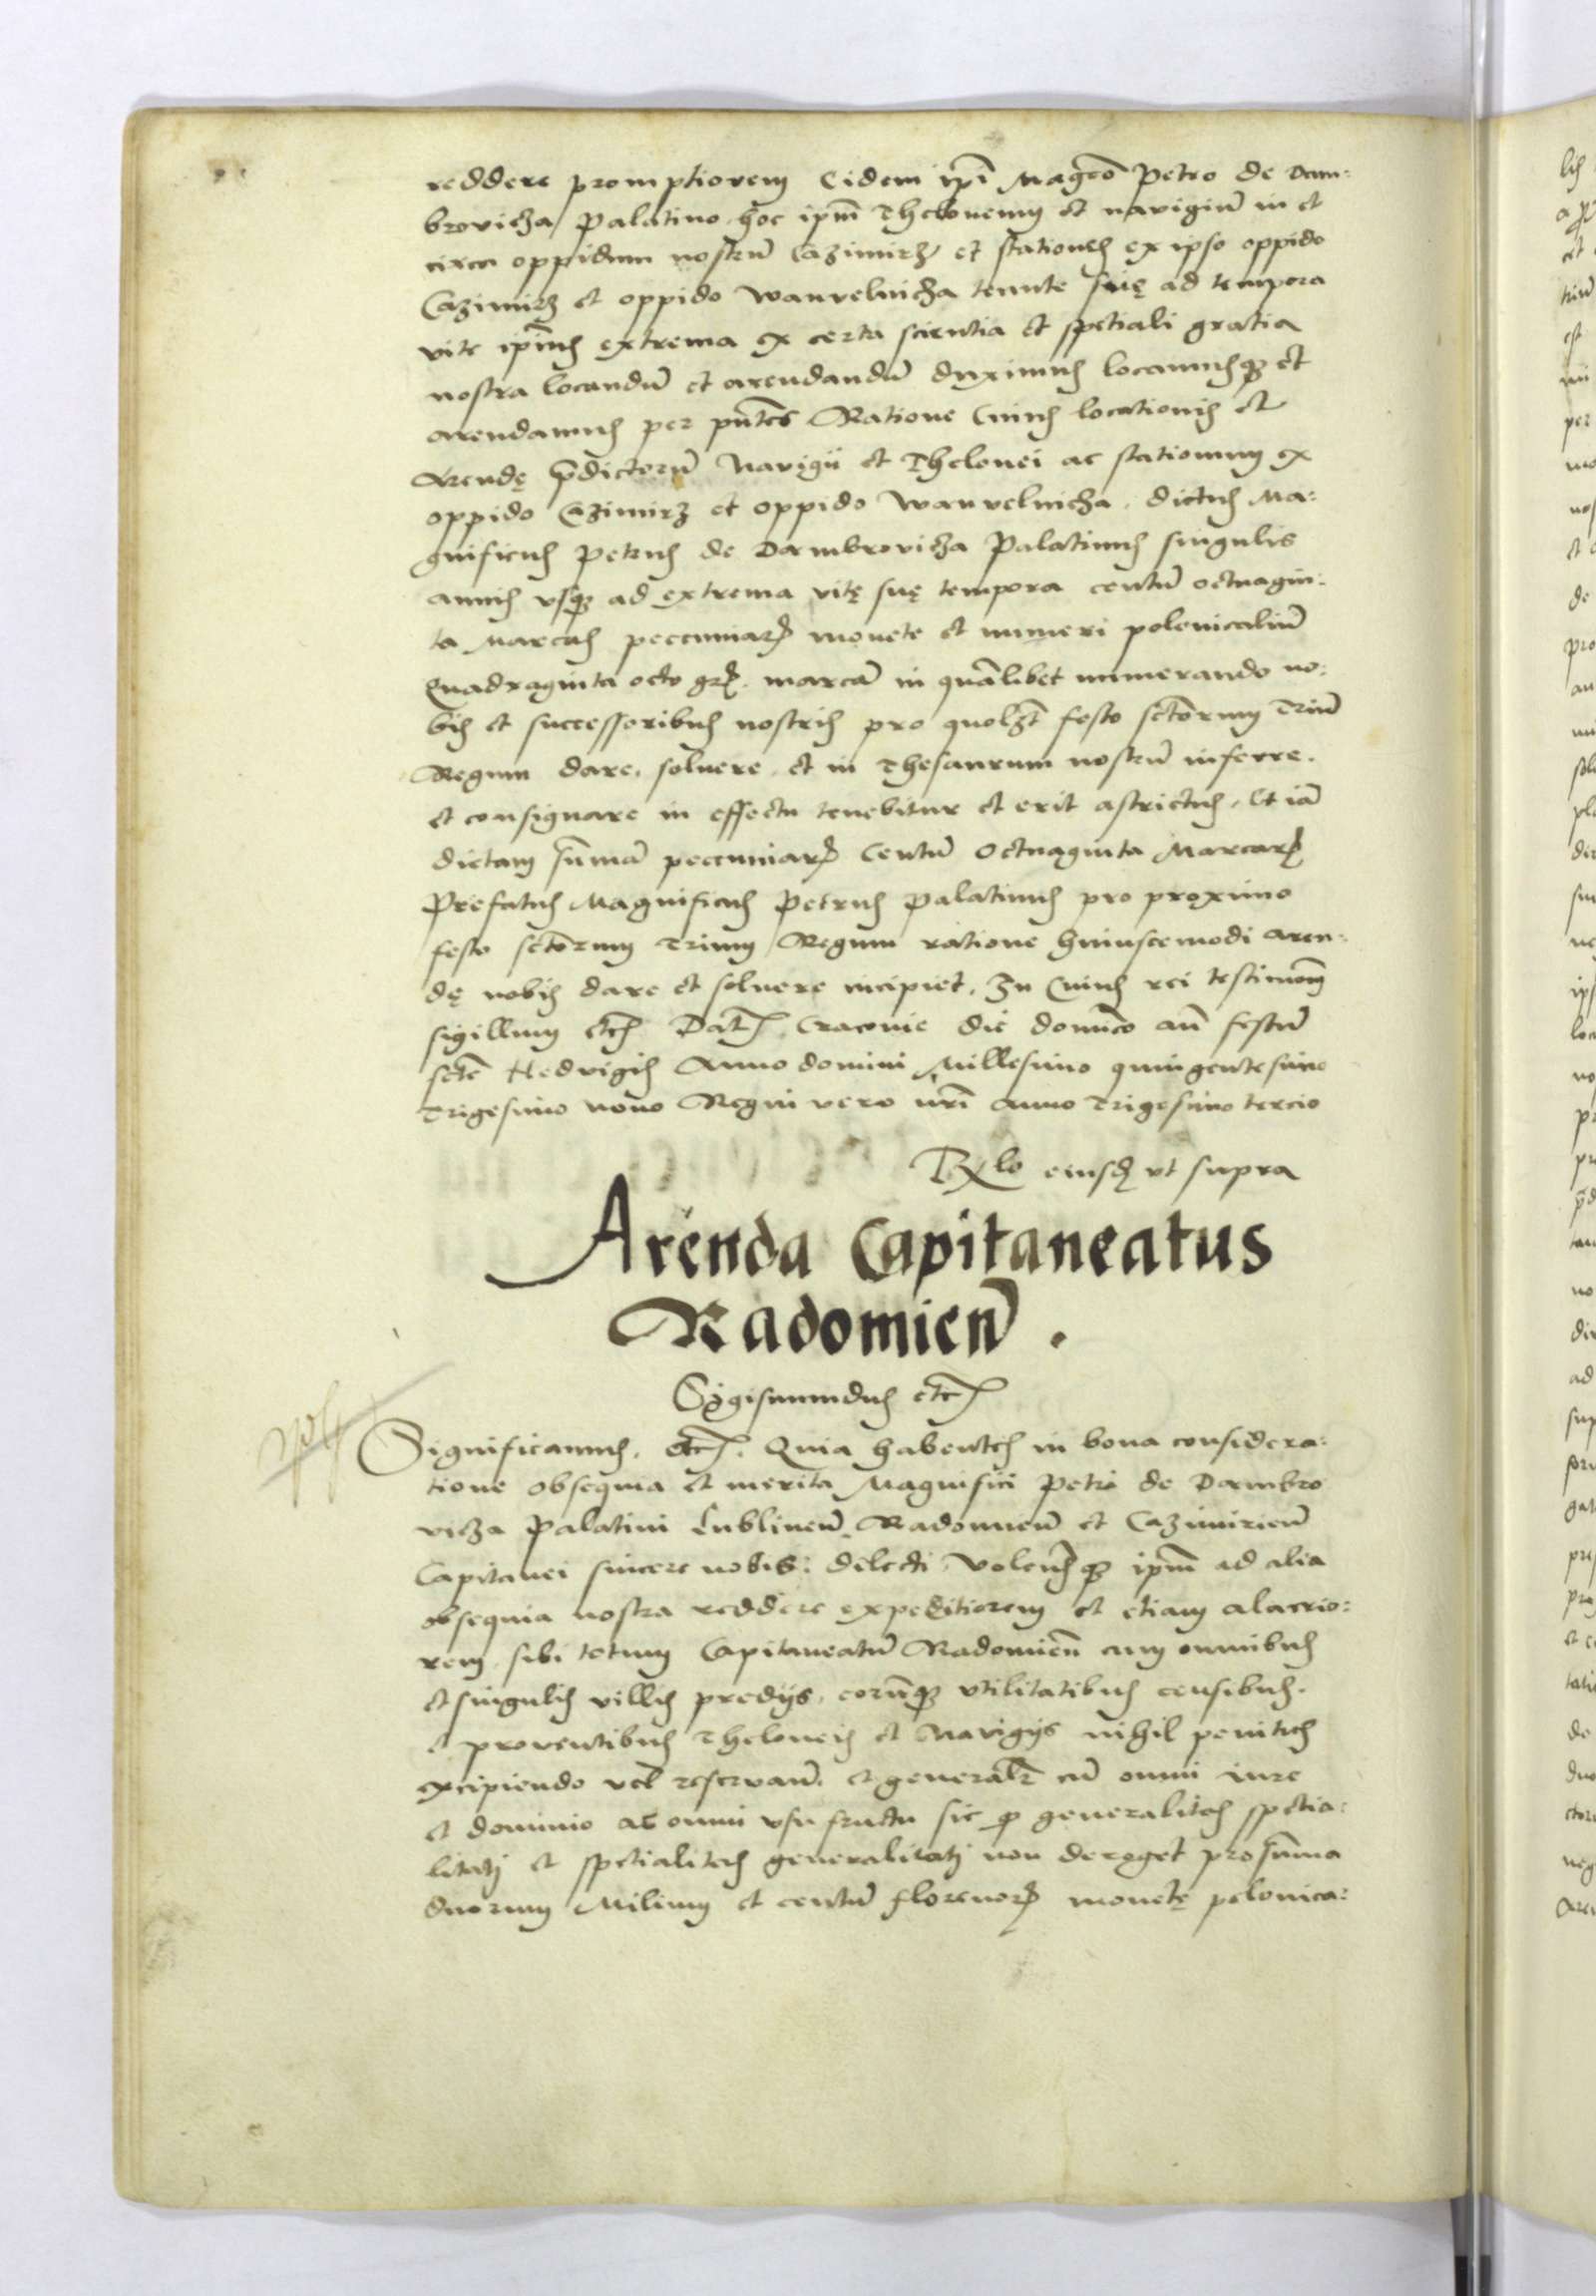 reddere promptiorem Eidem ipĩ Magco Petro de Dam:
browicza Palatino hoc ipm̃ Theloneum et navigiũ in et
circa oppidum nostrũ Cazimirz et stationes ex ipso oppido
Cazimirz et oppido Wanvelnicza tenute suę ad tempora
vite ipius extrema ex certa scientia et spetiali gratia
nostra locandũ et arendandũ duximus locamusqȝ et
arendamus per pñtes Ratione Cuius locationis et
Arendę p̃dictorũ Navigii et Thelonei ac stationum ex
oppido Cazimirz et oppido Wanvelnicza. dictus Ma:
gnificus Petrus de Dambrovicza Palatinus singulis
annis vsqȝ ad extrema vitę suę tempora centũ octuagin:
ta Marcas peccuniarꝝ monete et numeri polonicaliũ
Quadraginta octo grꝭ. marcã in quãlibet numerando no:
bis et successoribus nostris pro quolȝt festo sctorum Triũ
Regum dare, soluere et in Thesaurum nostrũ inferre.
et consignare in effectu tenebitur et erit astrictus, Et iã
dictam sum̃ã peccuniarꝝ Centũ Octuaginta Marcarꝝ
Prefatus Magnificus Petrus Palatinus pro proximo
festo sctorum Trium Regum ratione huiuscemodi aren:
dę nobis dare et soluere incipiet. In Cuius rei testimoñ
sigillum etcꝭ Datꝭ Cracouie die domico añ festũ
scte Hedvigis Anno domini Millesimo quingentesimo
Trigesimo nono Regni vero nrĩ anno Trigesimo tercio
Rlo eiusdꝫ vt supra
Arenda Capitaneatus
Radomieñ.
Sigismundus etcꝭ
Significamus, etcꝭ. Quia habentes in bona considera:
tione obsequia et merita Magnifici Petri de Dambro
vicza Palatini Lublineñ Radomieñ et Cazimirieñ
Capitanei sincere nobis: dilecti. Volenꝭqȝ ipm̃ ad alia
obsequia nostra reddere expeditiorem et etiam alacrio:
rem sibi totum Capitaneatũ Radomieñ cum omnibus
et singulis villis predijs, eorũqȝ vtilitatibus censibus.
et proventibus Theloneis et Navigijs nihil penitus
excipiendo vel reservanď. et generalr̃ cũ omni iure
et dominio ac omni vsu fructu sic ꝙ generalitas spetia:
litatj et spetialitas generalitatj non deroget pro sum̃a
duorum Milium et centũ florenorꝝ monetę polonica: